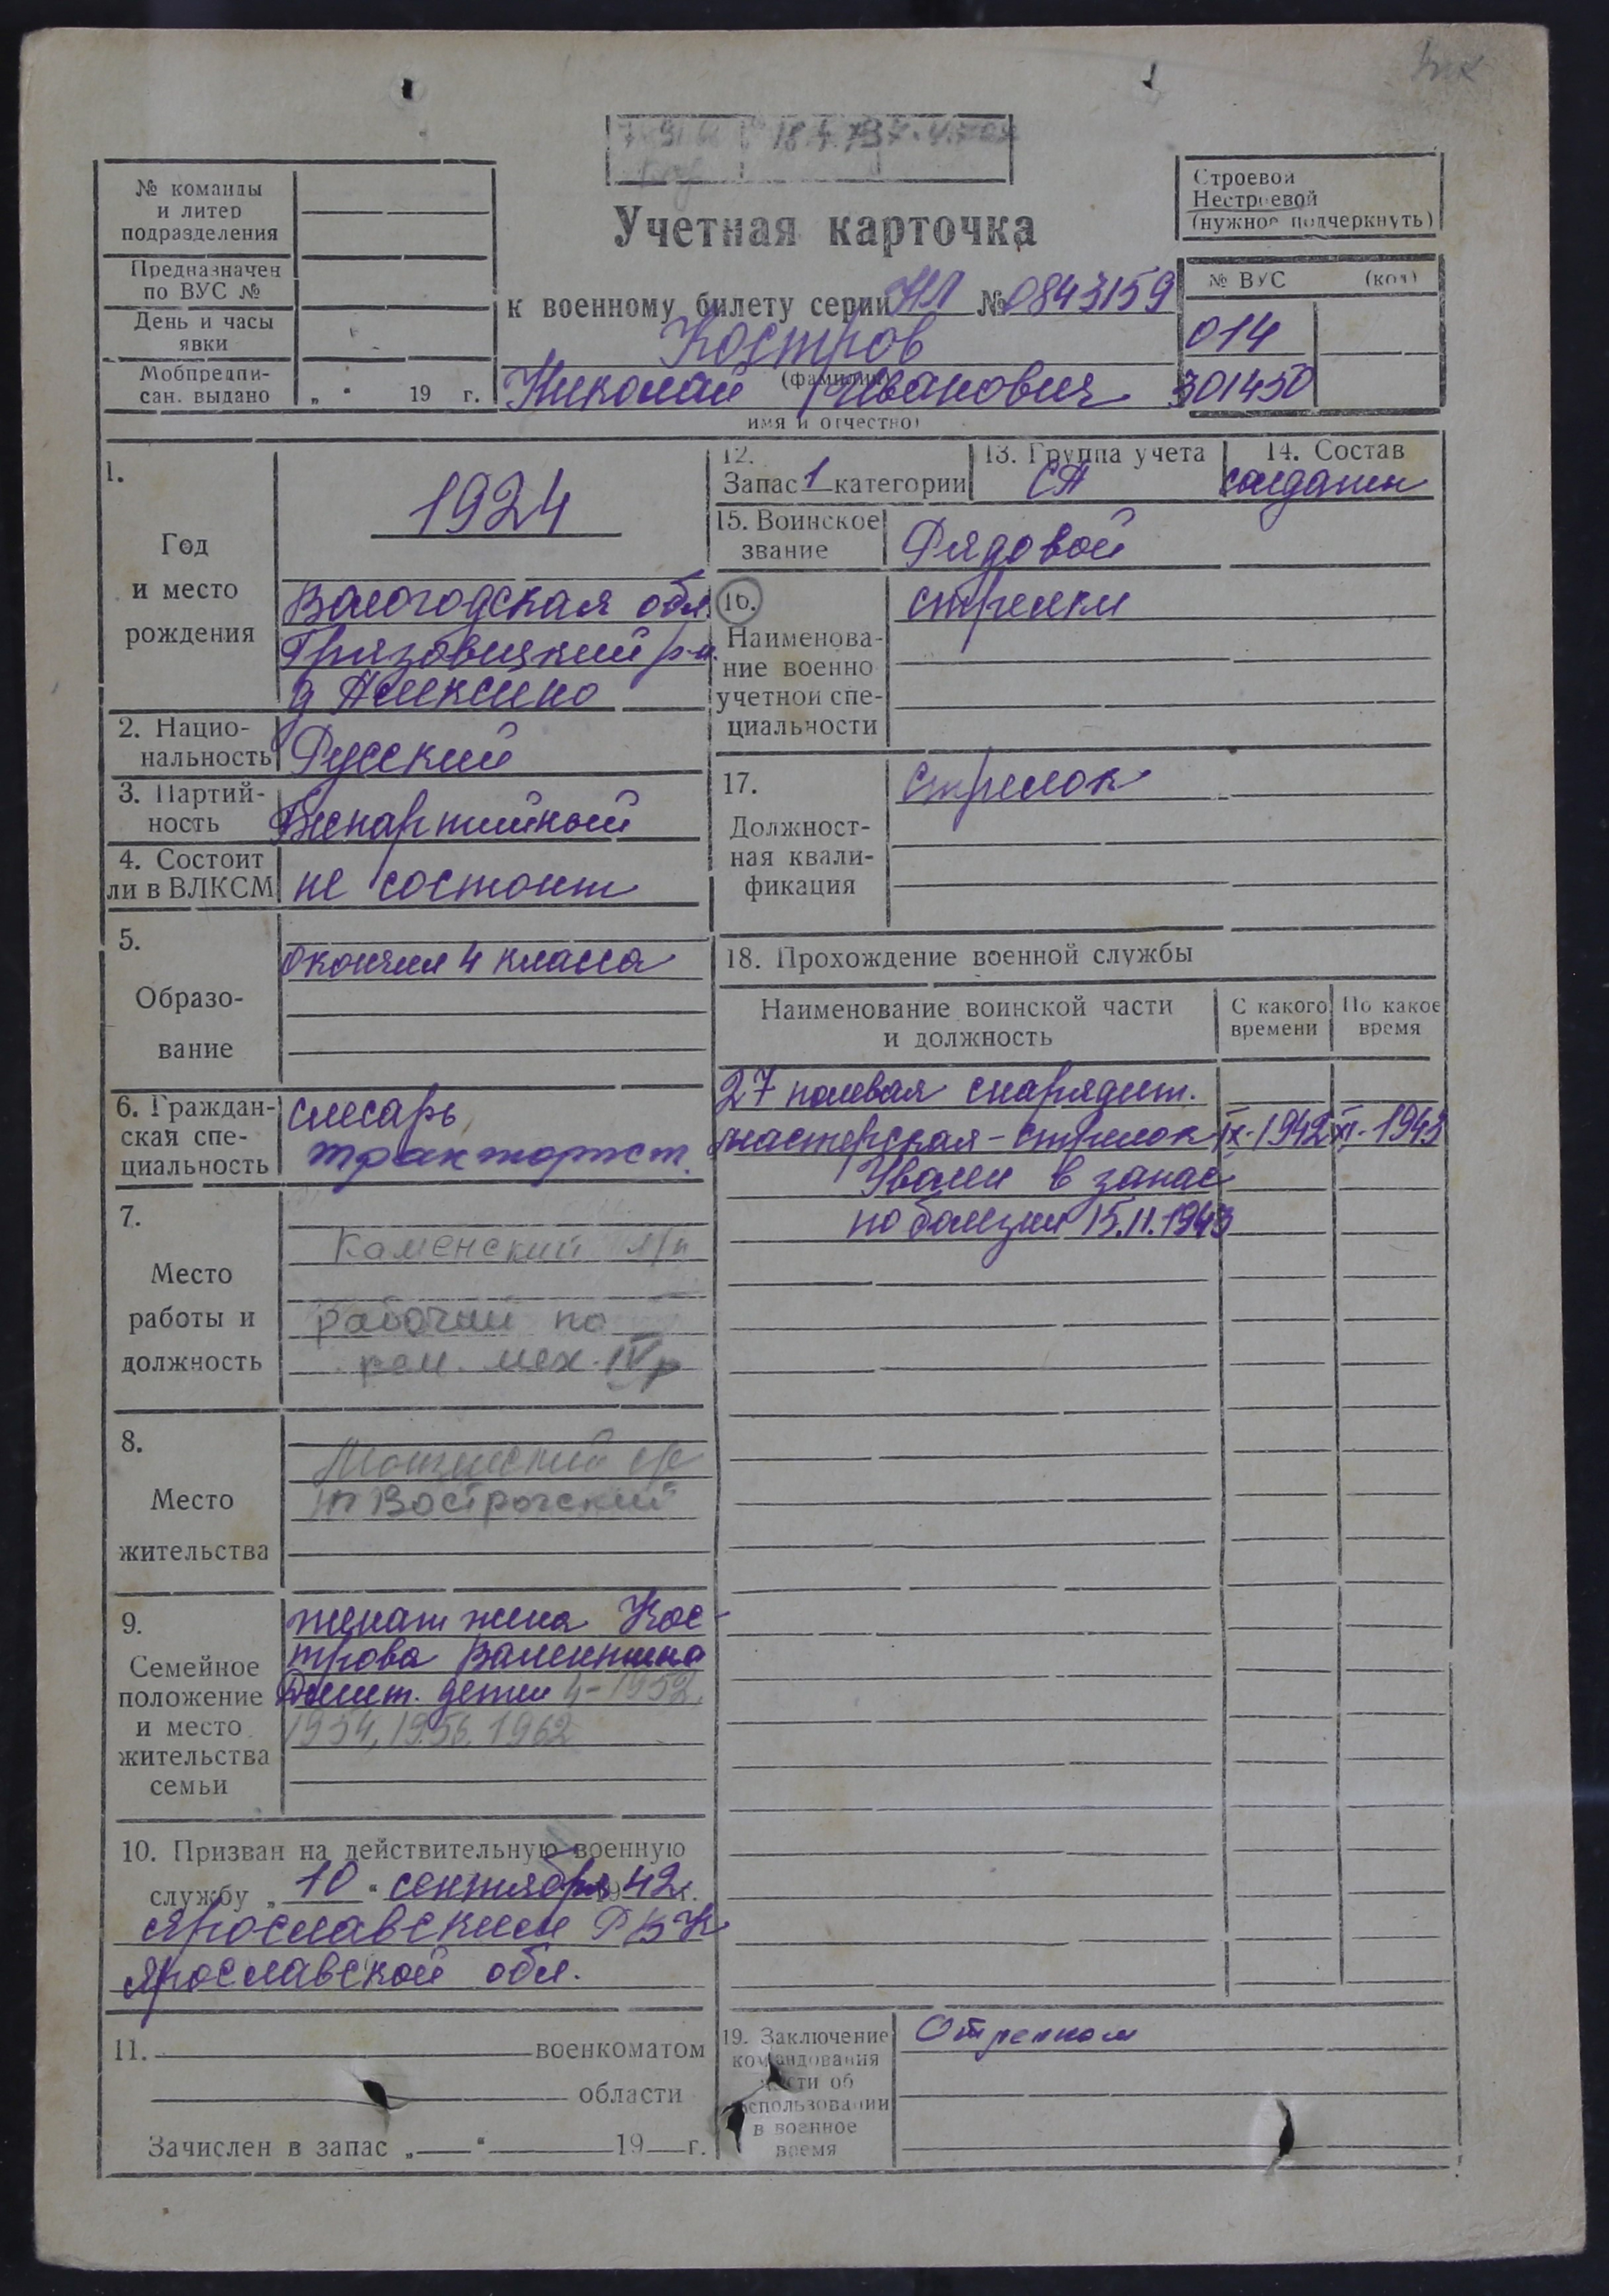 № команды
и литер
подразделения
Предназначен
по ВУС №
День и часы
явки
Мобпредпи-
сан. выдано
„ “ 19 г.
Учетная карточка
к военному билету серии НЛ № 0843159
Костров
(фамилия)
Николай Иванович
имя и отчество)
Строевой
Нестроевой
(нужное подчеркнуть)
№ ВУС (код)
014
301450
1.
Год
и место
рождения
1924
Вологодская обл.
Грязовицкий р-н.
д Алексино
2. Нацио-
нальность
Русский
3. Партий-
ность
Беспартийный
4. Состоит
ли в ВЛКСМ
не состоит
5.
Образо-
вание
окончил 4 класса
6. Граждан-
ская спе-
циальность
слесарь
тракторист.
7.
Место
работы и
должность
Каменский л/п
рабочий по
рем. мех. IVр
8.
Место
жительства
п Вострогский
9.
Семейное
положение
и место
жительства
семьи
женат жена Кос-
трова Валентина
Дмит. дети 4-1952,
1954, 1956, 1962
10. Призван на действительную военную
службу „ 10 “ сентября 1942 г.
Ярославским РВК
Ярославской обл.
11. военкоматом
области
Зачислен в запас „ “ 19 г.
12.
Запас 1 категории
13. Группа учета
СА
14. Состав
солдатск
15. Воинское
звание
Рядовой
16.
Наименова-
ние военно
учетной спе-
циальности
стрелки
17.
Должност-
ная квали-
фикация
стрелок
18. Прохождение военной службы
Наименование воинской части
и должность
С какого
времени
По какое
время
27 полевая снарядит.
мастерская - стрелок IX-1942 XI-1943
Уволен в запас
по болезни 15.11.1943
19. Заключение
командования
части об
использовании
в военное
время